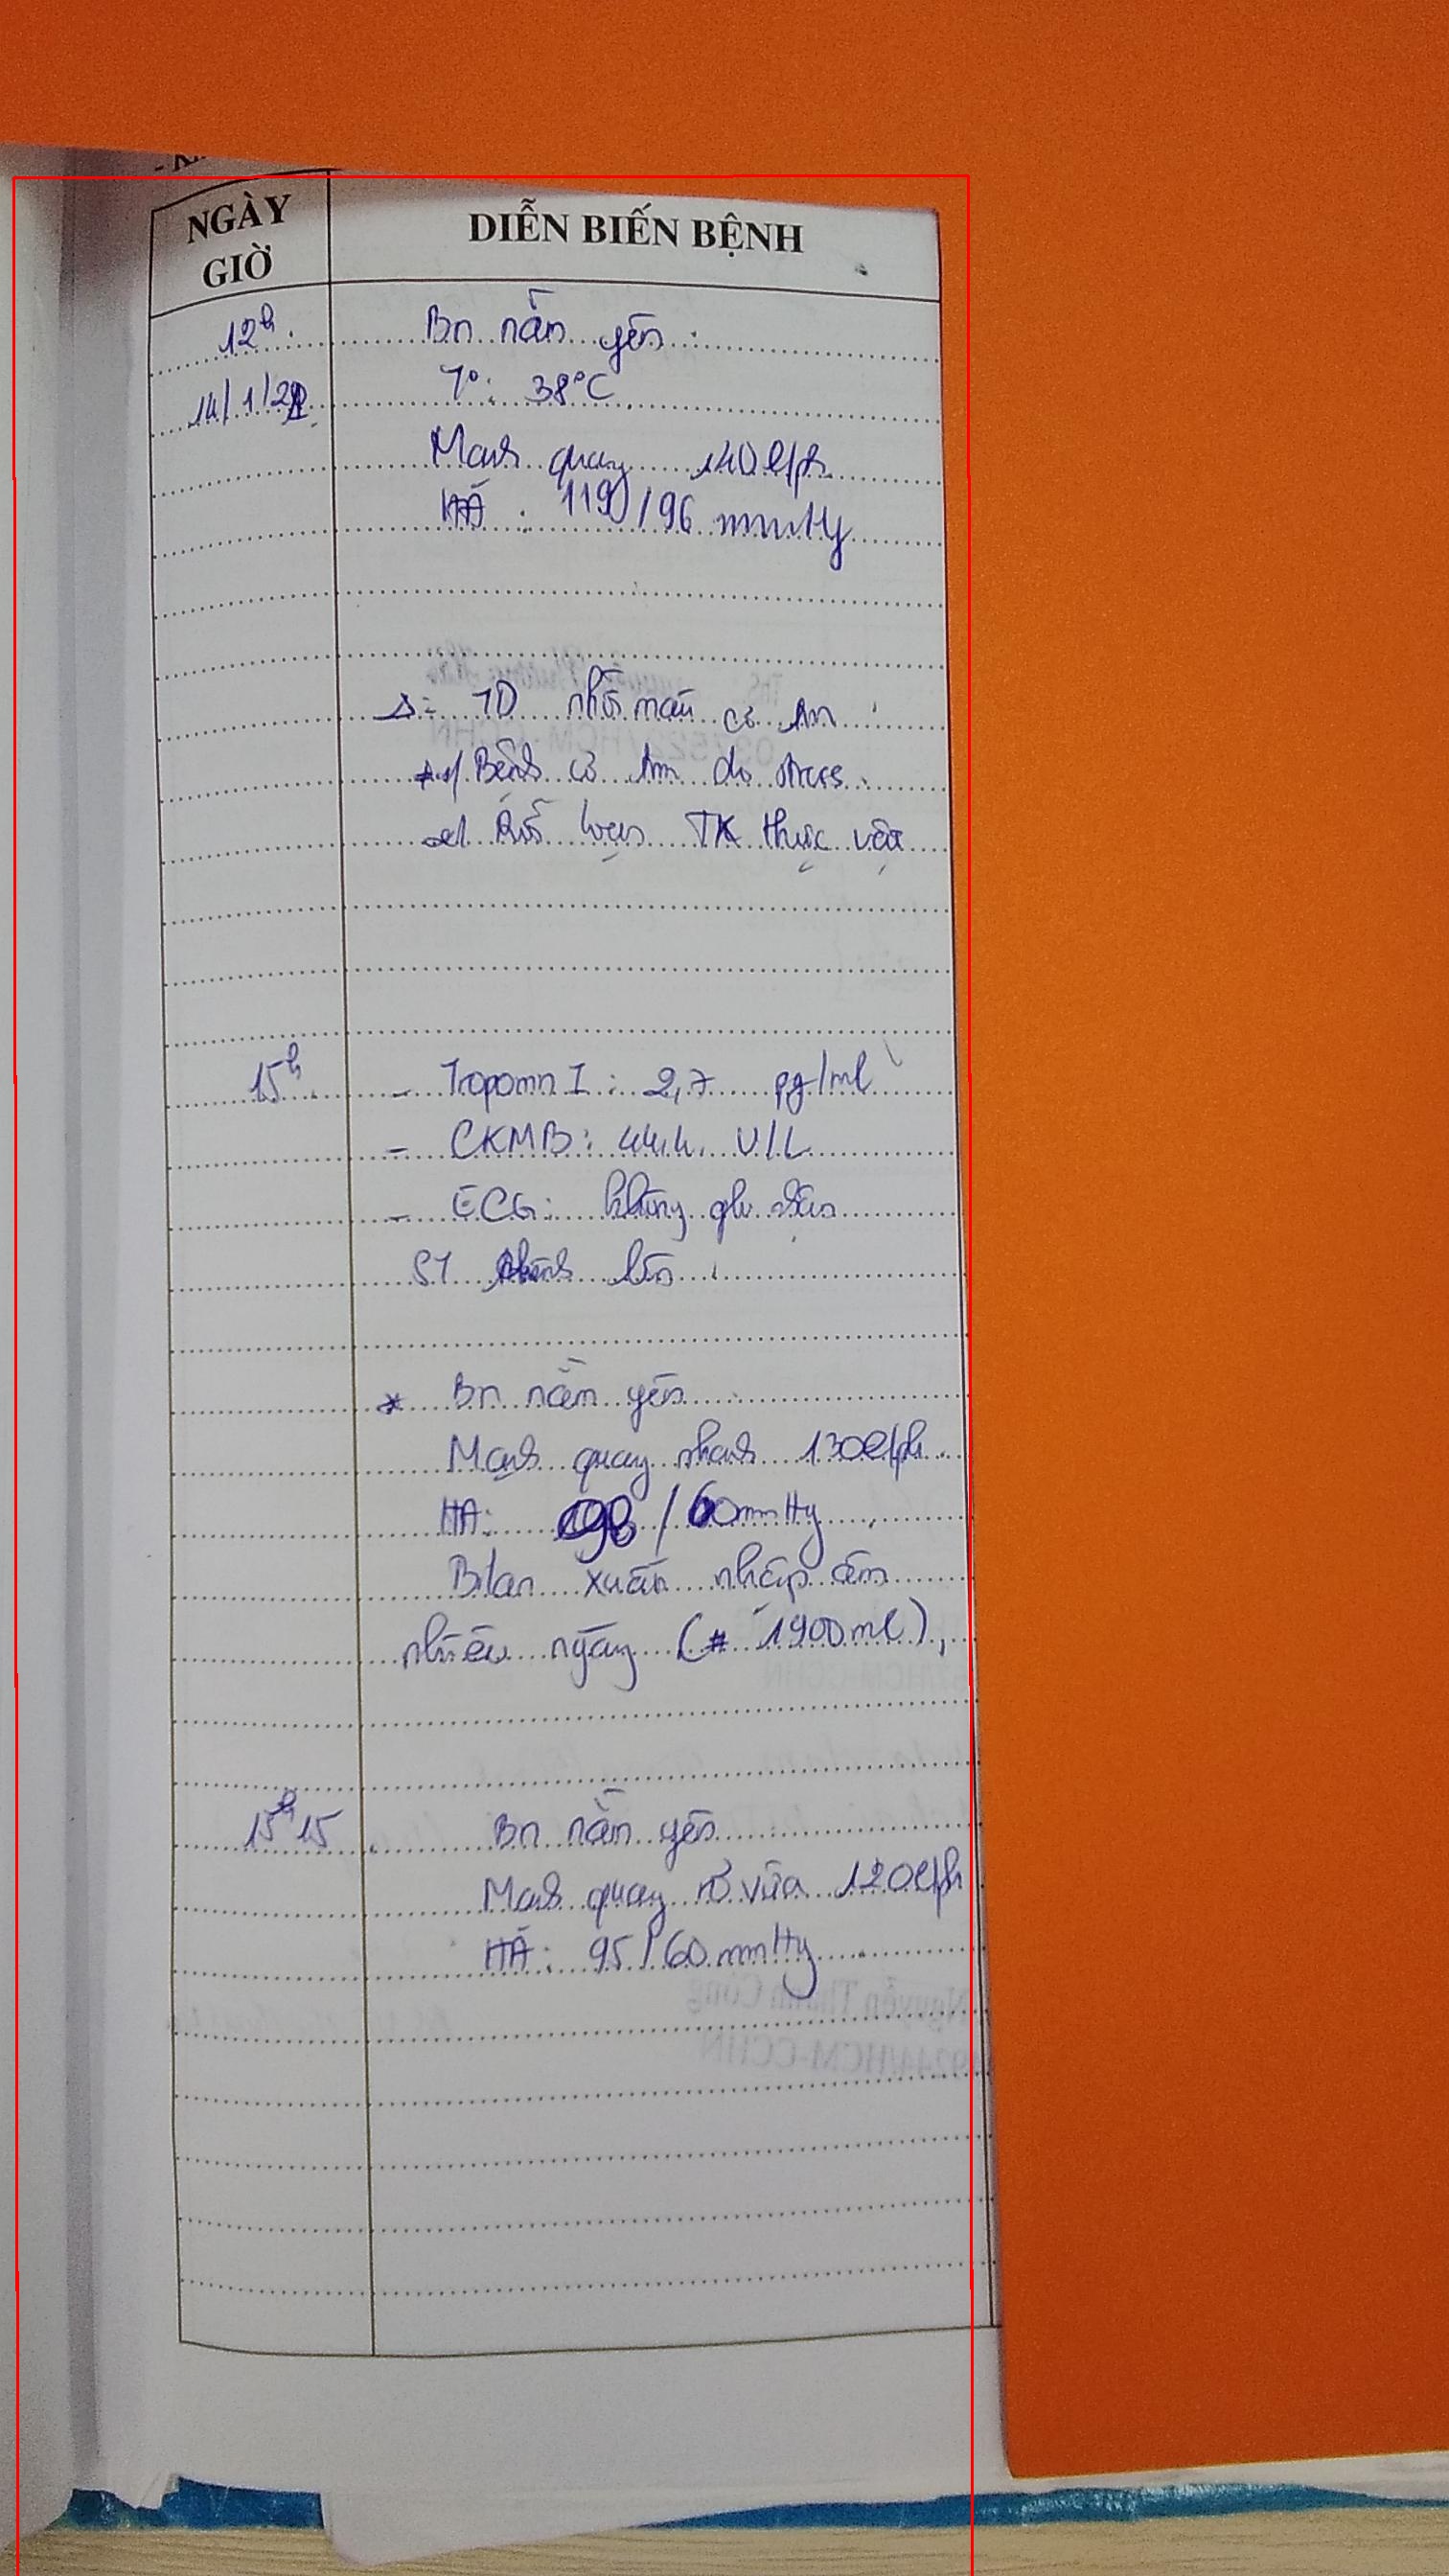 NGÀY
GIỜ
DIỄN BIẾN BỆNH
12h. Bn nằm yên.
14/1/22 T°: 38°C
Mạch quay 140 l/ph
HA: 119/96 mmHg
Δ: TD nhồi máu cơ tim
≠ 1/ Bệnh cơ tim do stress.
2/ Rối loạn TK thực vật
15h. - Troponin I: 2,7 pg/ml
- CKMB: 44.4. U/L
- ECG: không ghi nhận
ST chênh lên.
* Bn nằm yên.
Mạch quay nhanh 130 l/ph.
HA: /60 mmHg
Bilan xuất nhập âm
nhiều ngày (# 1900ml),
15h15 Bn nằm yên
Mạch quay rõ vừa 120 l/ph
HA: 95/60 mmHg